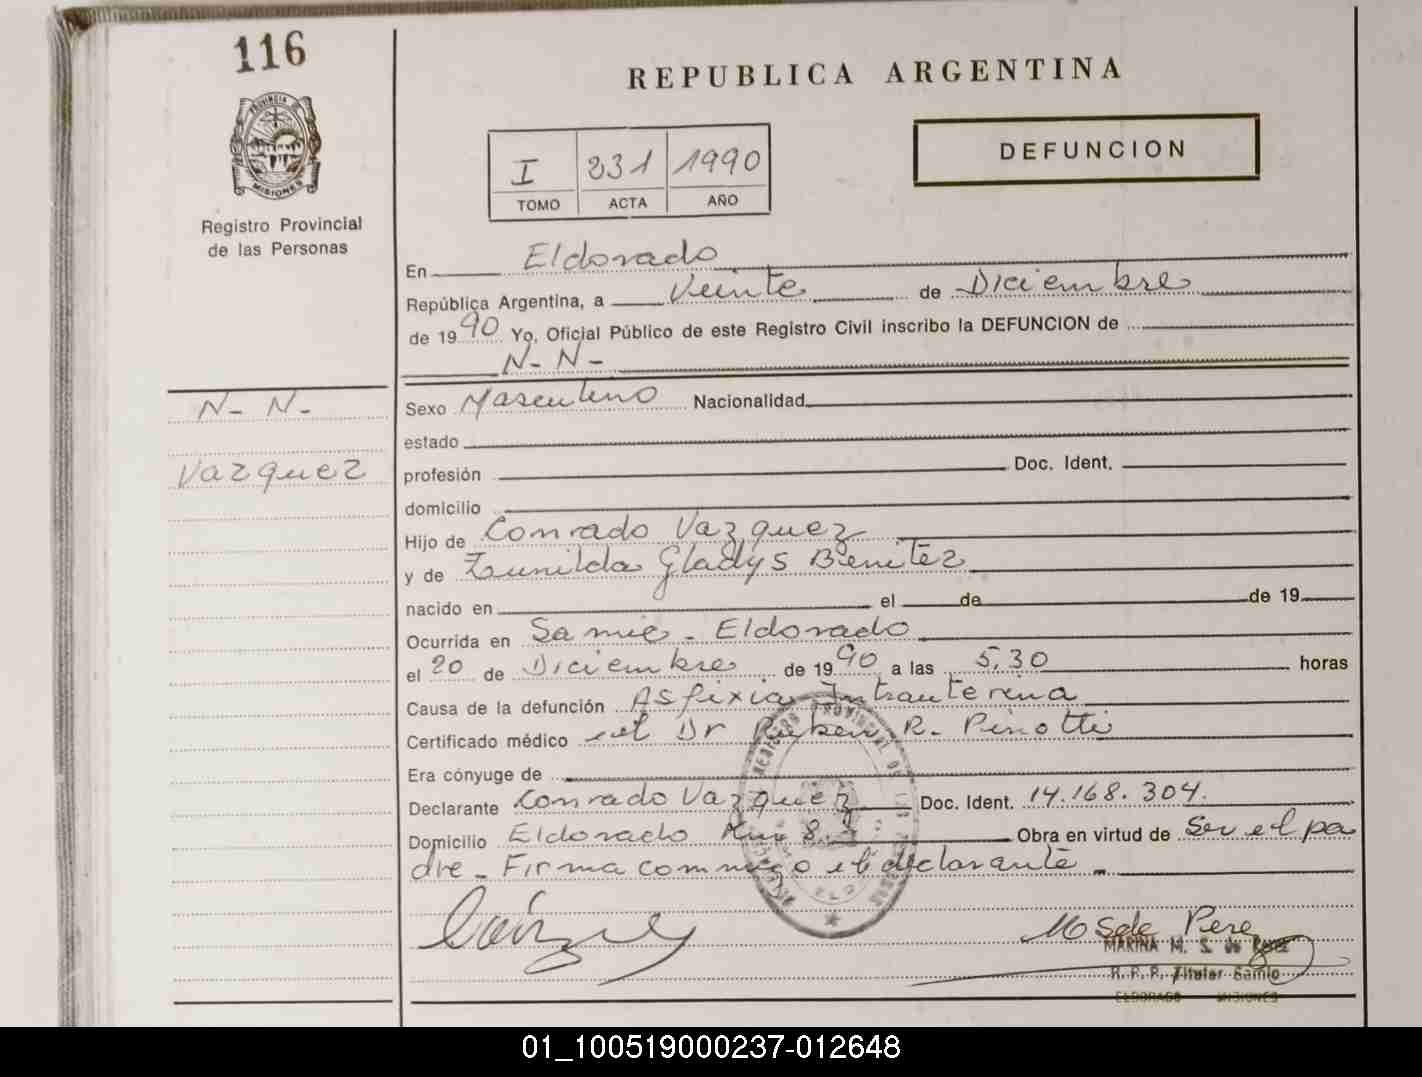 116
REPUBLICA ARGENTINA
PROVINCIA DE
MISIONES
Registro Provincial
de las Personas
I 231 1990
TOMO ACTA AÑO
DEFUNCION
En Eldorado
República Argentina, a Veinte de Diciembre
de 1990 Yo, Oficial Público de este Registro Civil inscribo la DEFUNCION de
N- N-
N- N-
Vazquez
Sexo Masculino Nacionalidad
estado
profesión Doc. Ident.
domicilio
Hijo de Conrado Vazquez
y de Zunilda Gladys Benitez
nacido en el de de 19
Ocurrida en Samic - Eldorado
el 20 de Diciembre de 1990 a las 5,30 horas
Causa de la defunción Asfixia Intrauterina
Certificado médico el Dr Ruben R. Pinotti
Era cónyuge de
Declarante Conrado Vazquez Doc. Ident. 14.168.304.
Domicilio Eldorado Km 8 Obra en virtud de Ser el pa
dre - Firma conmigo el declarante
M S de Perez
MARINA M. S. de Perez
R.P.P. Titular Samic
ELDORADO MISIONES
01_100519000237-012648